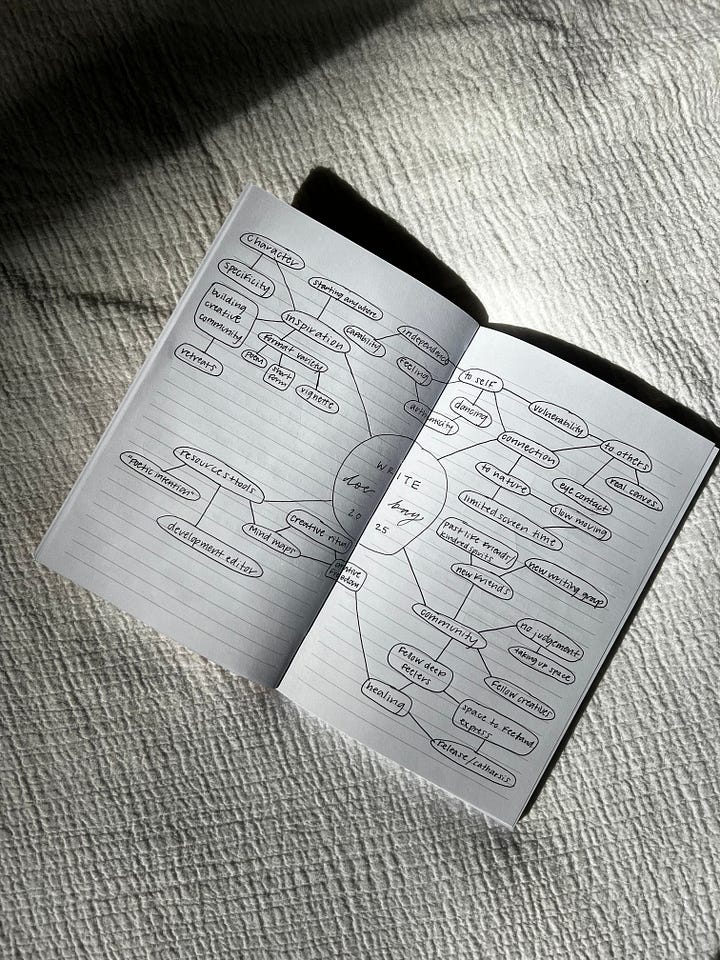 character
specificity
building
creative
community
retreats
starting anywhere
inspiration
capability
format variety
poem
short
form
vignette
independence
feeling
authenticity
to self
dancing
vulnerability
connection
to others
eye contact
real convos
to nature
slow moving
limited screen time
WRITE
doe bay
20 25
resources + tools
"poetic intention"
development editor
Mind maps
creative ritual
creative
freedom
past life friends/
kindred spirits
new friends
new writing group
community
no judgement
taking up space
Fellow creatives
Fellow deep
feelers
healing
space to feel and
express
Release/catharsis